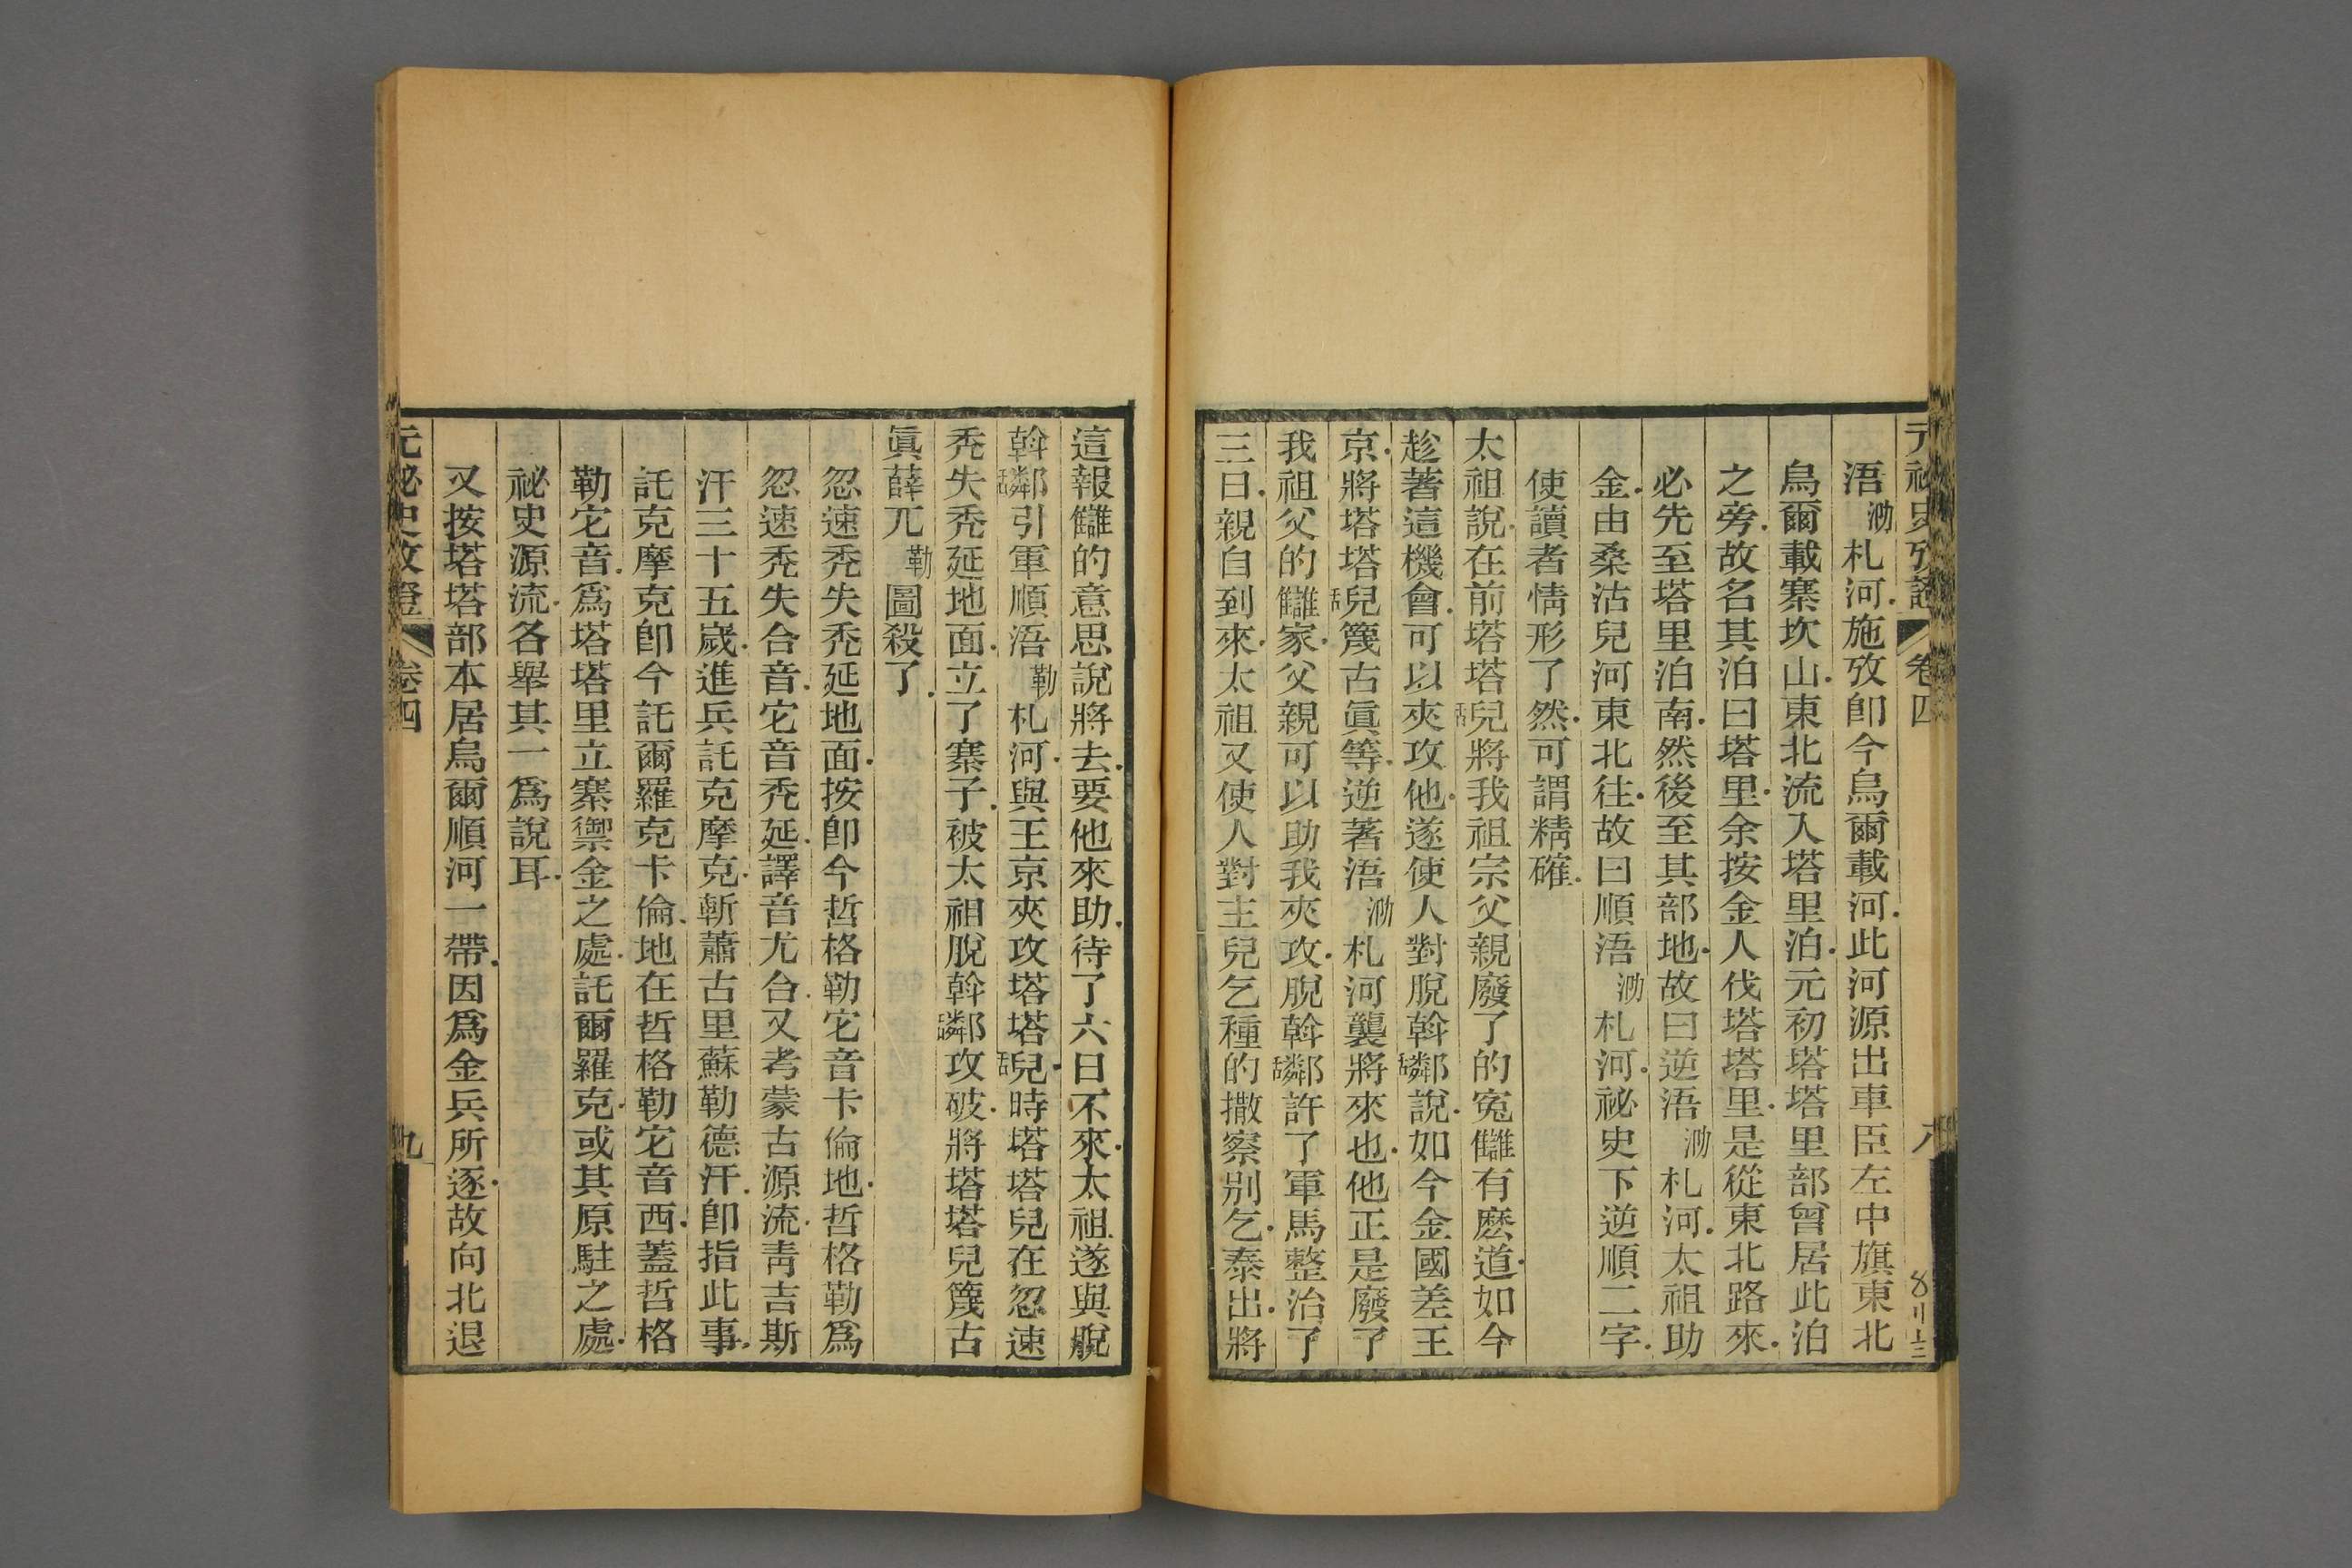 元祕史攷證 卷四 八
浯泐札河施攷卽今烏爾載河此河源出車臣左中旗東北
烏爾載寨坎山東北流入塔里泊元初塔塔里部曾居此泊
之旁故名其泊曰塔里余按金人伐塔塔里是從東北路來
必先至塔里泊南然後至其部地故曰逆浯泐札河太祖助
金由桑沽兒河東北往故曰順浯泐札河祕史下逆順二字
使讀者情形了然可謂精確
太祖說在前塔塔兒將我祖宗父親廢了的寃讎有麽道如今
趁著這機會可以夾攻他遂使人對脫斡鄰說如今金國差王
京將塔塔兒篾古眞等逆著浯泐札河襲將來也他正是廢了
我祖父的讎家父親可以助我夾攻脫斡鄰許了軍馬整治了
三日親自到來太祖又使人對主兒乞種的撒察別乞泰出將
這報讎的意思說將去要他來助待了六日不來太祖遂與脫
斡鄰引軍順浯勒札河與王京夾攻塔塔兒時塔塔兒在忽速
禿失禿延地面立了寨子被太祖脫斡鄰攻破將塔塔兒篾古
眞薛兀勒圖殺了
忽速禿失禿延地面按卽今哲格勒它音卡倫地哲格勒爲
忽速禿失合音它音禿延譯音尤合又考蒙古源流靑吉斯
汗三十五歲進兵託克摩克斬蕭古里蘇勒德汗卽指此事
託克摩克卽今託爾羅克卡倫地在哲格勒它音西蓋哲格
勒它音爲塔塔里立寨禦金之處託爾羅克或其原駐之處
祕史源流各舉其一爲說耳
又按塔塔部本居烏爾順河一帶因爲金兵所逐故向北退
元祕史攷證 卷四 九